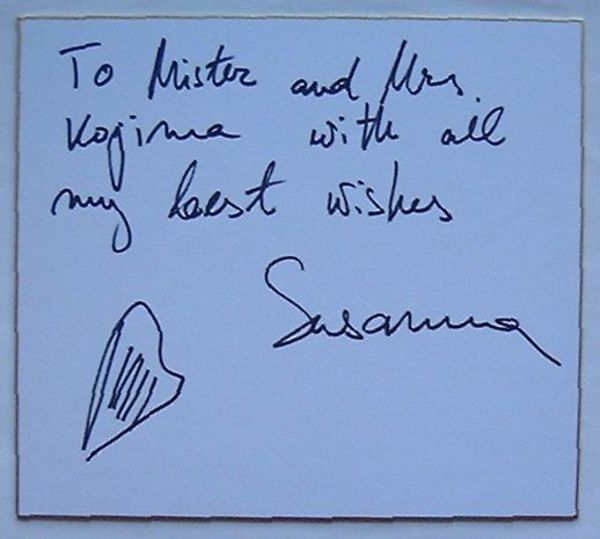 To Mister and Mrs.
Kojima with all
my best wishes
Susanna